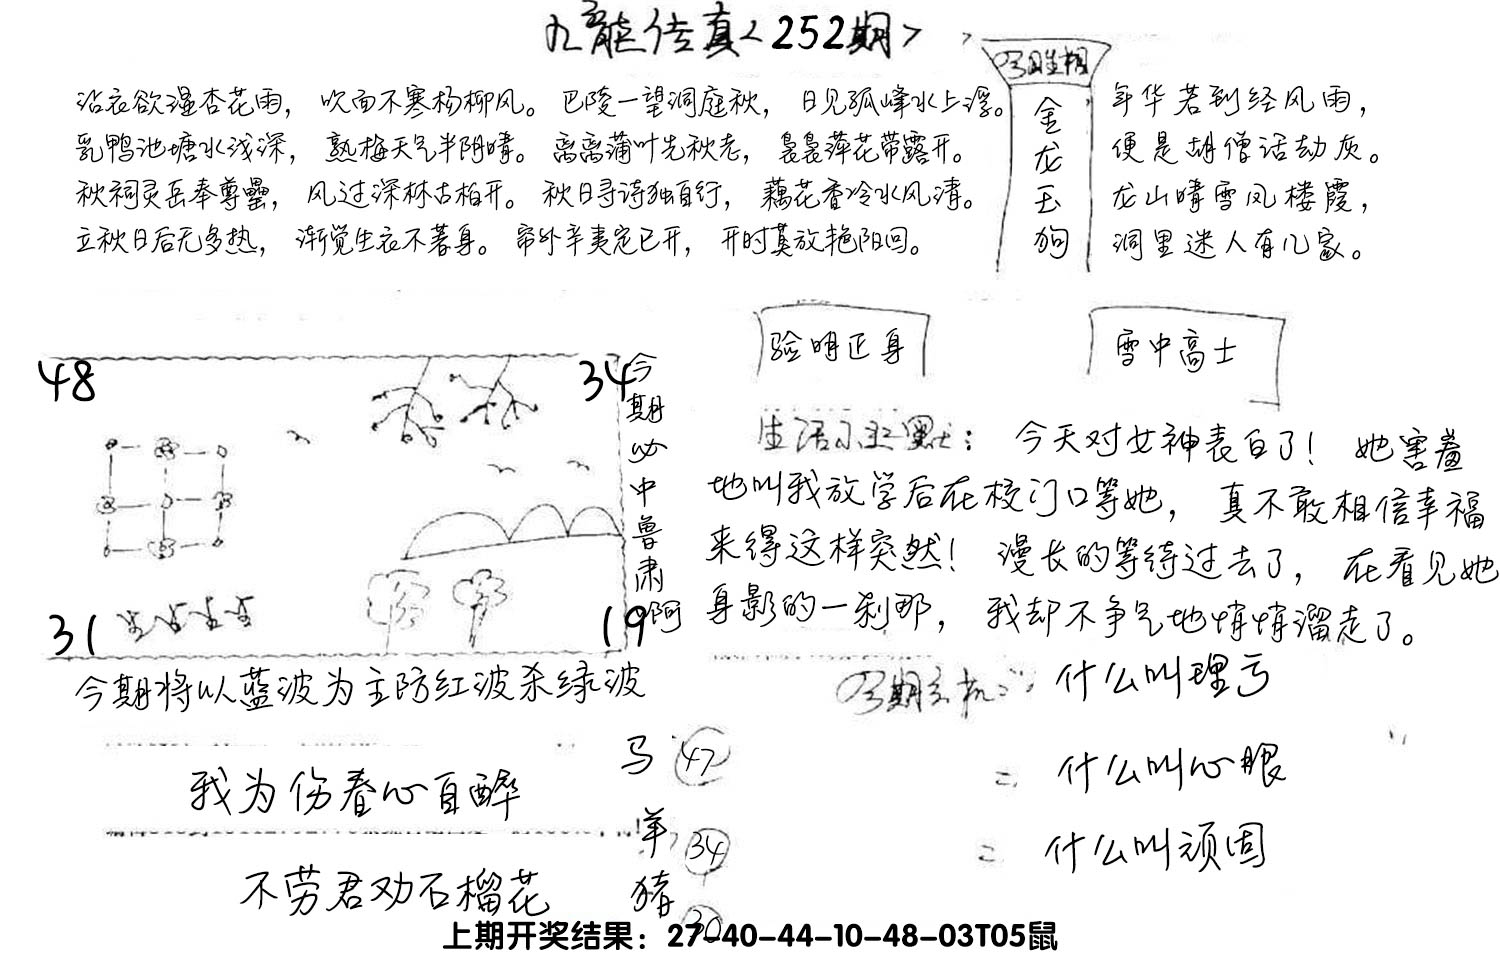 九龙传真<252期>
沾衣欲湿杏花雨，吹面不寒杨柳风。巴陵一望洞庭秋，日见孤峰水上浮。
乳鸭池塘水浅深，熟梅天气半阴晴。离离蒲叶先秋老，袅袅萍花带露开。
秋祠灵岳奉尊罍，风过深林古柏开。秋日寻诗独自行，藕花香冷水风清。
立秋日后无多热，渐觉生衣不著身。帘外辛夷定已开，开时莫放艳阳回。
今日生相
金龙玉狗
年华若到经风雨，
便是胡僧话劫灰。
龙山晴雪凤楼霞，
洞里迷人有几家。
验明正身
雪中高士
48
34
31
19
今期必中鲁肃阿
生活小幽默：今天对女神表白了！她害羞
地叫我放学后在校门口等她，真不敢相信幸福
来得这样突然！漫长的等待过去了，在看见她
身影的一刹那，我却不争气地悄悄溜走了。
今期将以蓝波为主防红波杀绿波
今期玄机
什么叫理亏
= 什么叫心眼
= 什么叫顽固
我为伤春心自醉
不劳君劝石榴花
马 47
羊 34
猪 30
上期开奖结果：27-40-44-10-48-03T05鼠